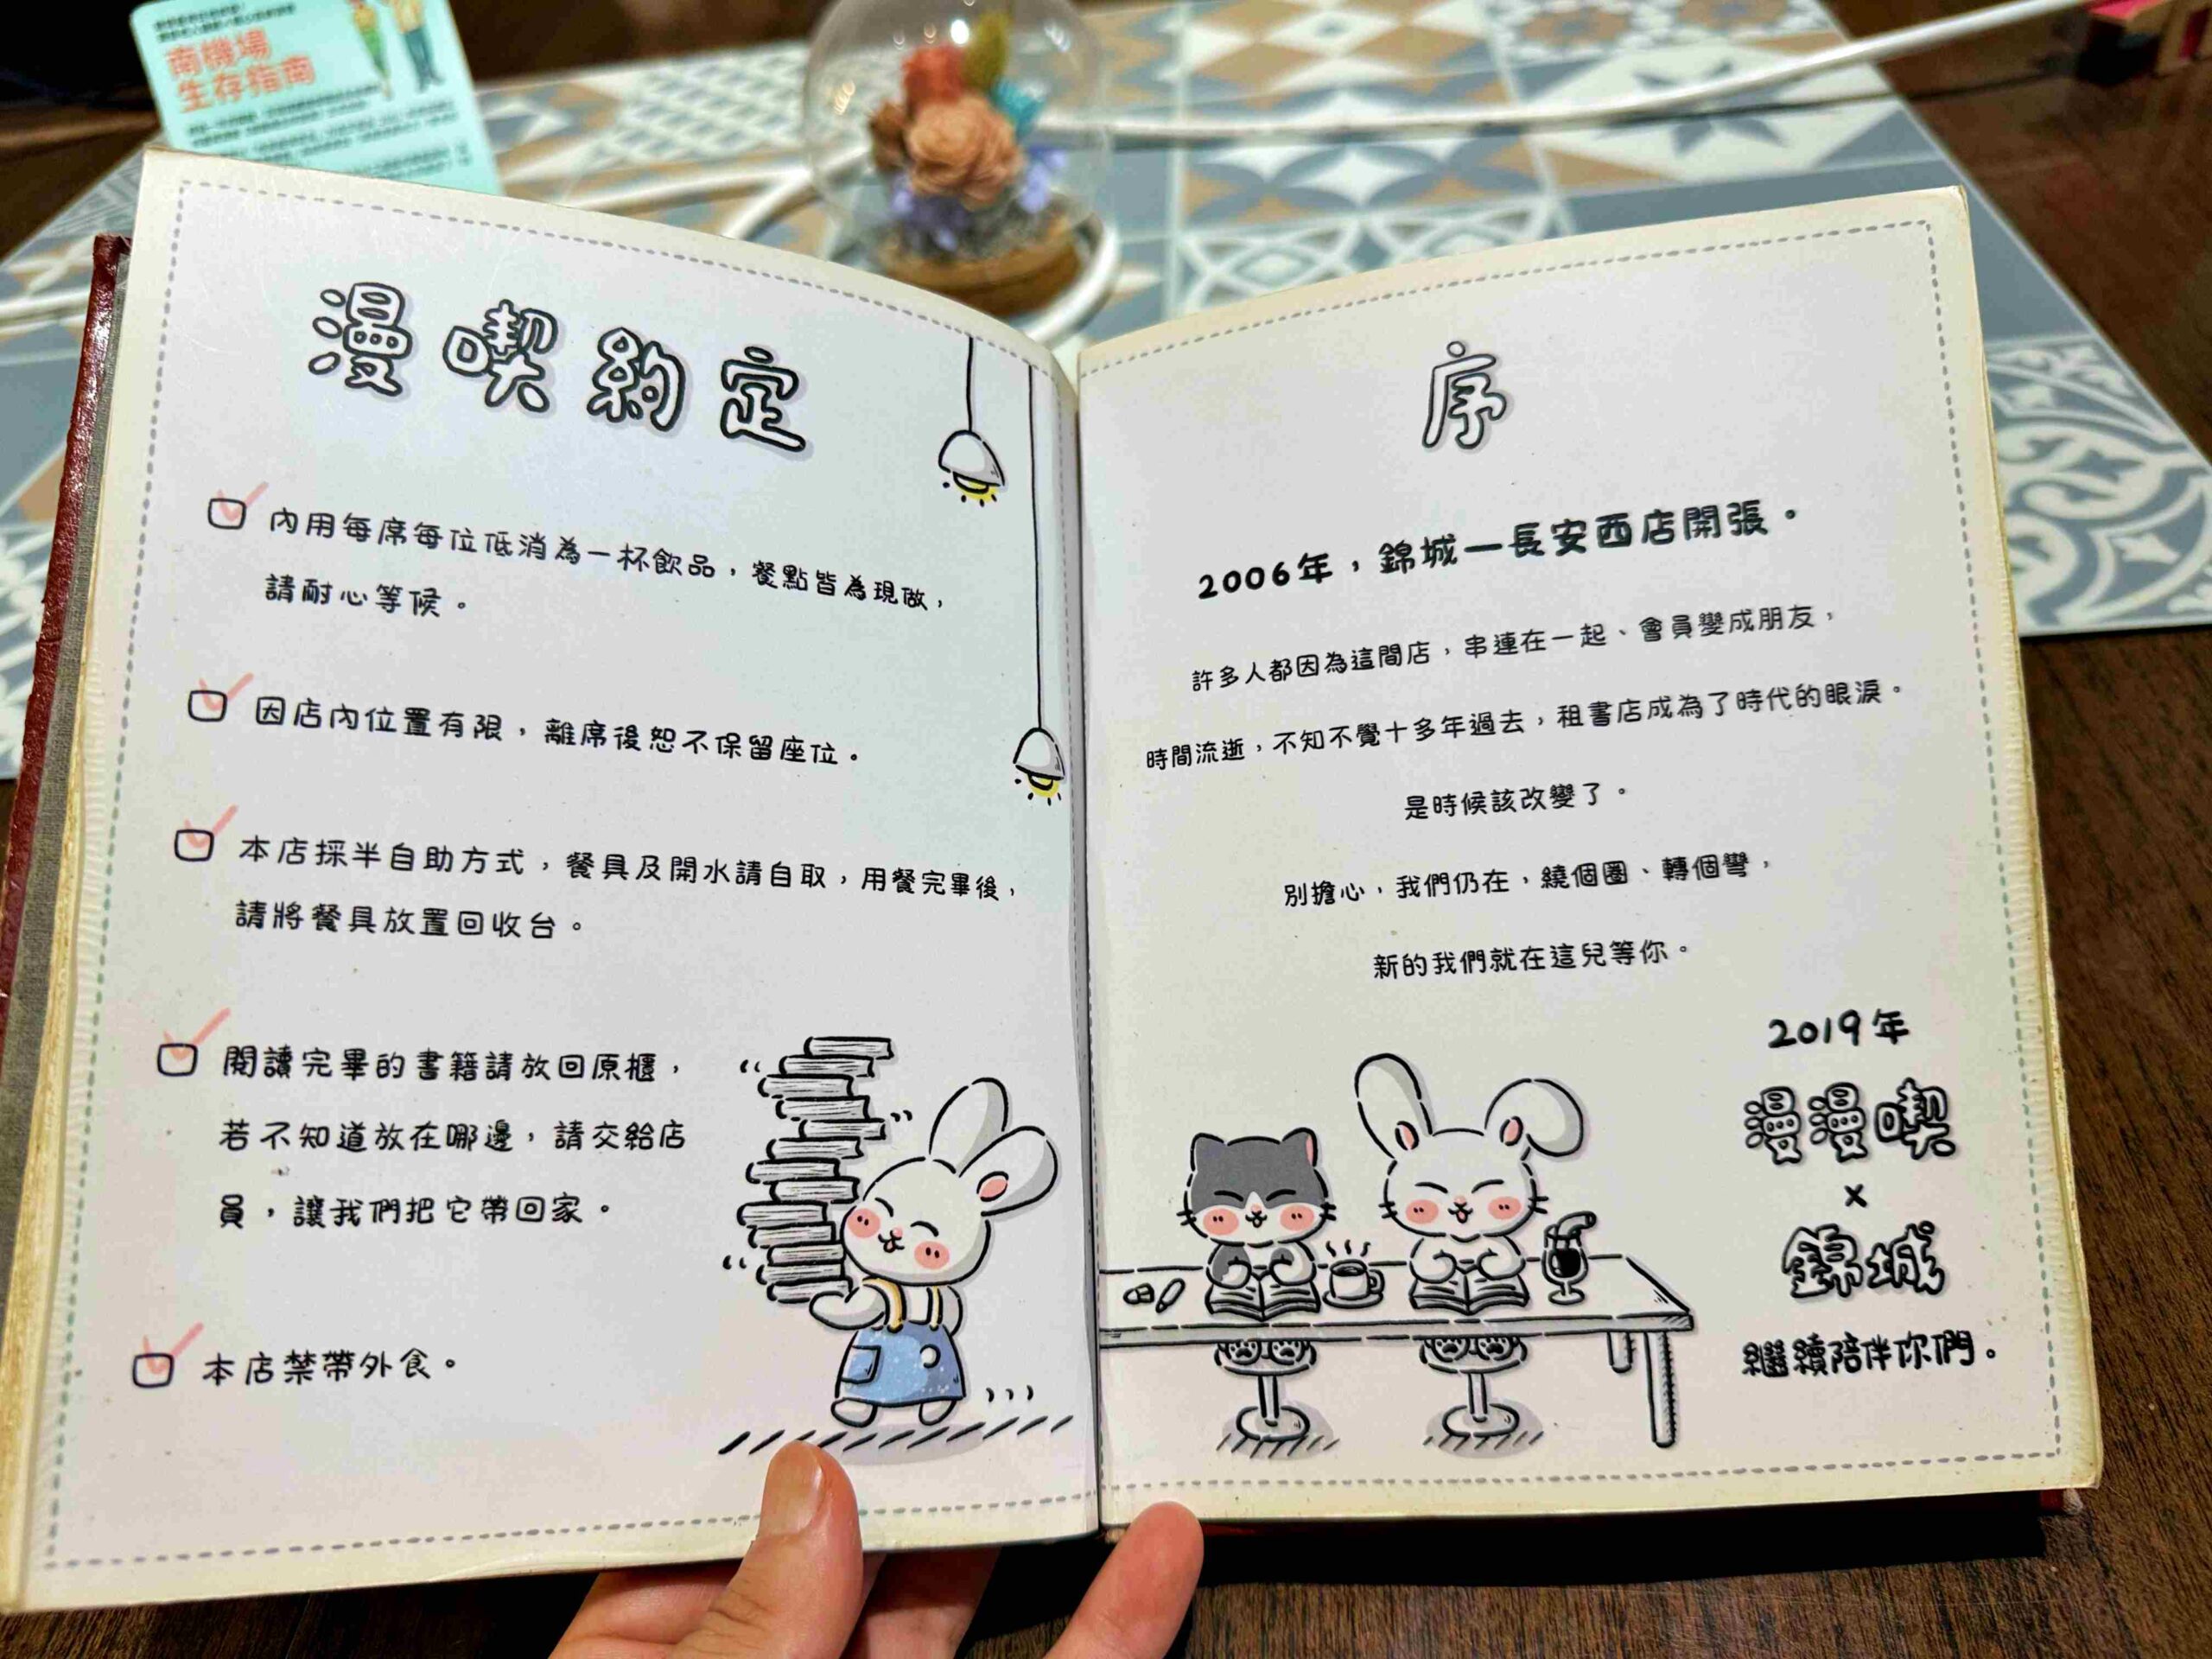 南機場
生存指南
漫喫約定
內用每席每位低消為一杯飲品，餐點皆為現做，
請耐心等候。
因店內位置有限，離席後恕不保留座位。
本店採半自助方式，餐具及開水請自取，用餐完畢後，
請將餐具放置回收台。
閱讀完畢的書籍請放回原櫃，
若不知道放在哪邊，請交給店
員，讓我們把它帶回家。
本店禁帶外食。
序
2006年，錦城—長安西店開張。
許多人都因為這間店，串連在一起、會員變成朋友，
時間流逝，不知不覺十多年過去，租書店成為了時代的眼淚。
是時候該改變了。
別擔心，我們仍在，繞個圈、轉個彎，
新的我們就在這兒等你。
2019年
漫漫喫
x
錦城
繼續陪伴你們。